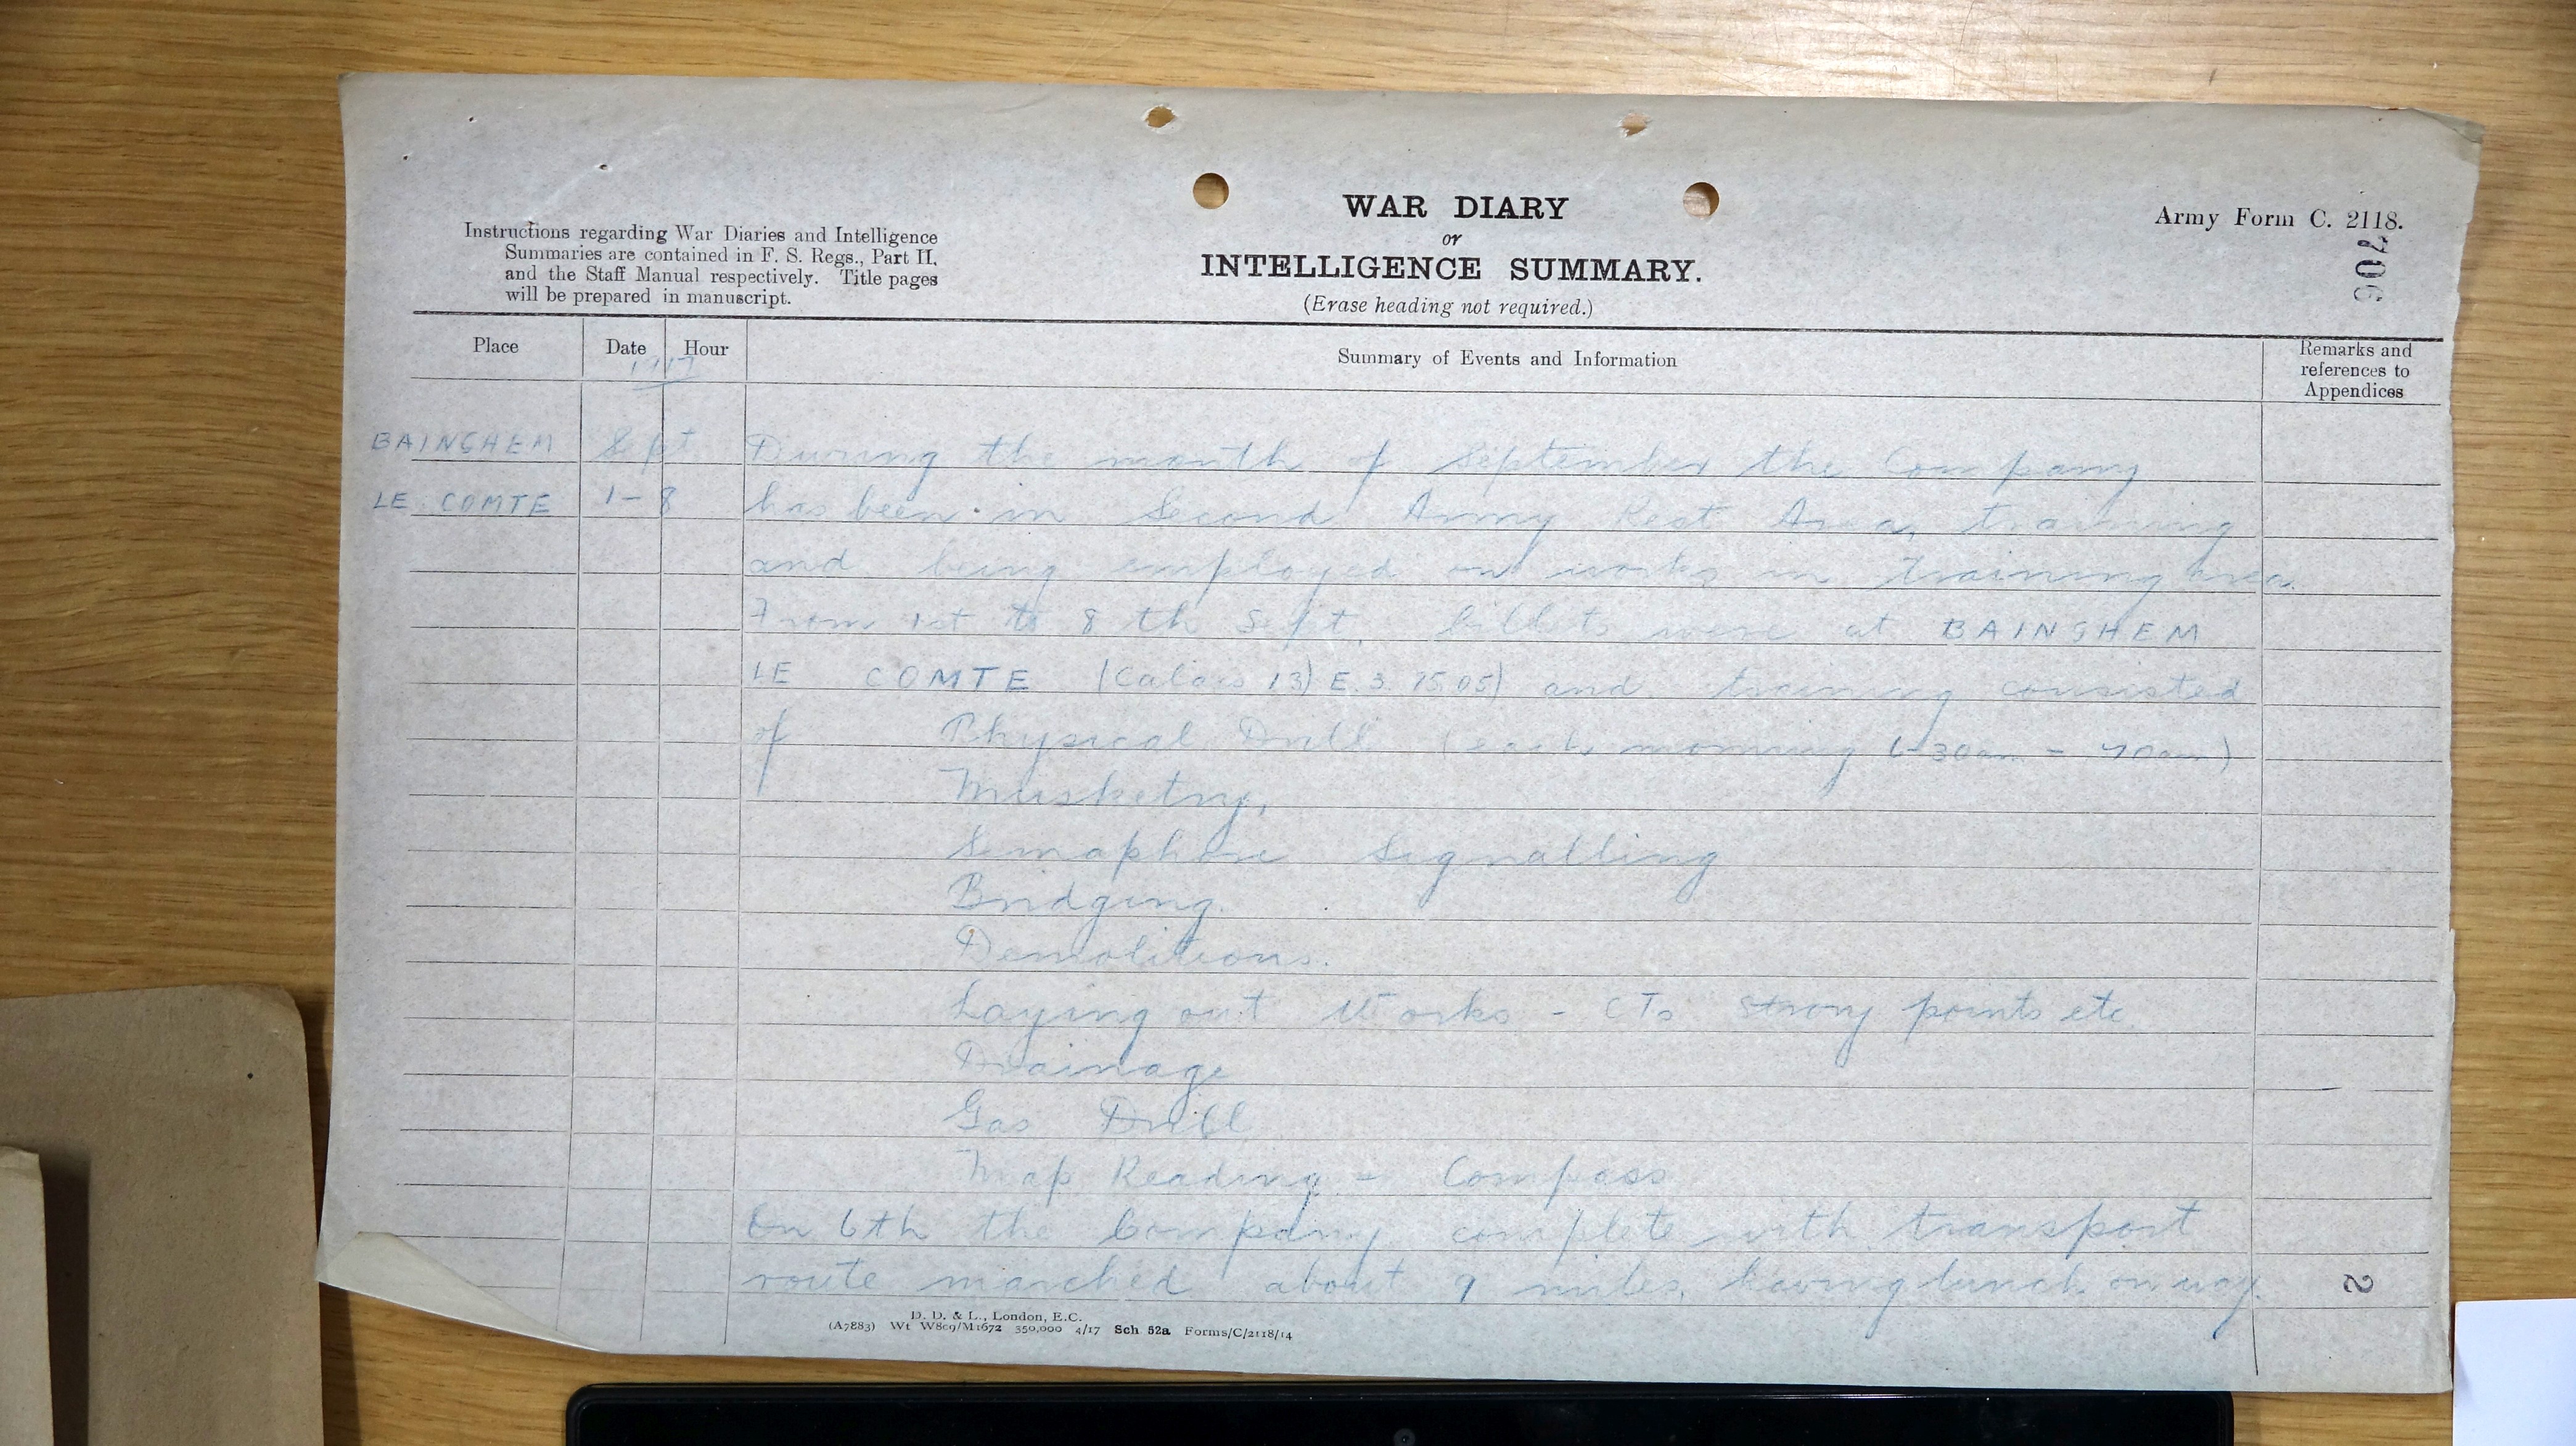 WAR DIARY
or
INTELLIGENCE SUMMARY.
(Erase heading not required.)
Instructions regarding War Diaries and Intelligence
Summaries are contained in F. S. Regs., Part II,
and the Staff Manual respectively. Title pages
will be prepared in manuscript.
Army Form C. 2118.
706
Place Date Hour Summary of Events and Information Remarks and references to Appendices
1917
BAINGHEM Sept During the month of September the Company
LE COMTE 1-8 has been in Second Army Rest Area, training
and being employed on works in training area.
From 1st to 8th Sept. billets were at BAINGHEM
LE COMTE (Calais 13) E.3. 05) and training consisted
of Physical Drill (each morning 6-30am - 7 0am)
Musketry,
Semaphore Signalling
Bridging.
Demolitions.
Laying out Works - CTs strong points etc
Drainage
Gas Drill
Map Reading - Compass
On 6th the Company complete with transport
route marched about 9 miles, having lunch on way.
2
D. D. & L., London, E.C.
(A7883) Wt W809/M1672 350,000 4/17 Sch 52a Forms/C/2118/14